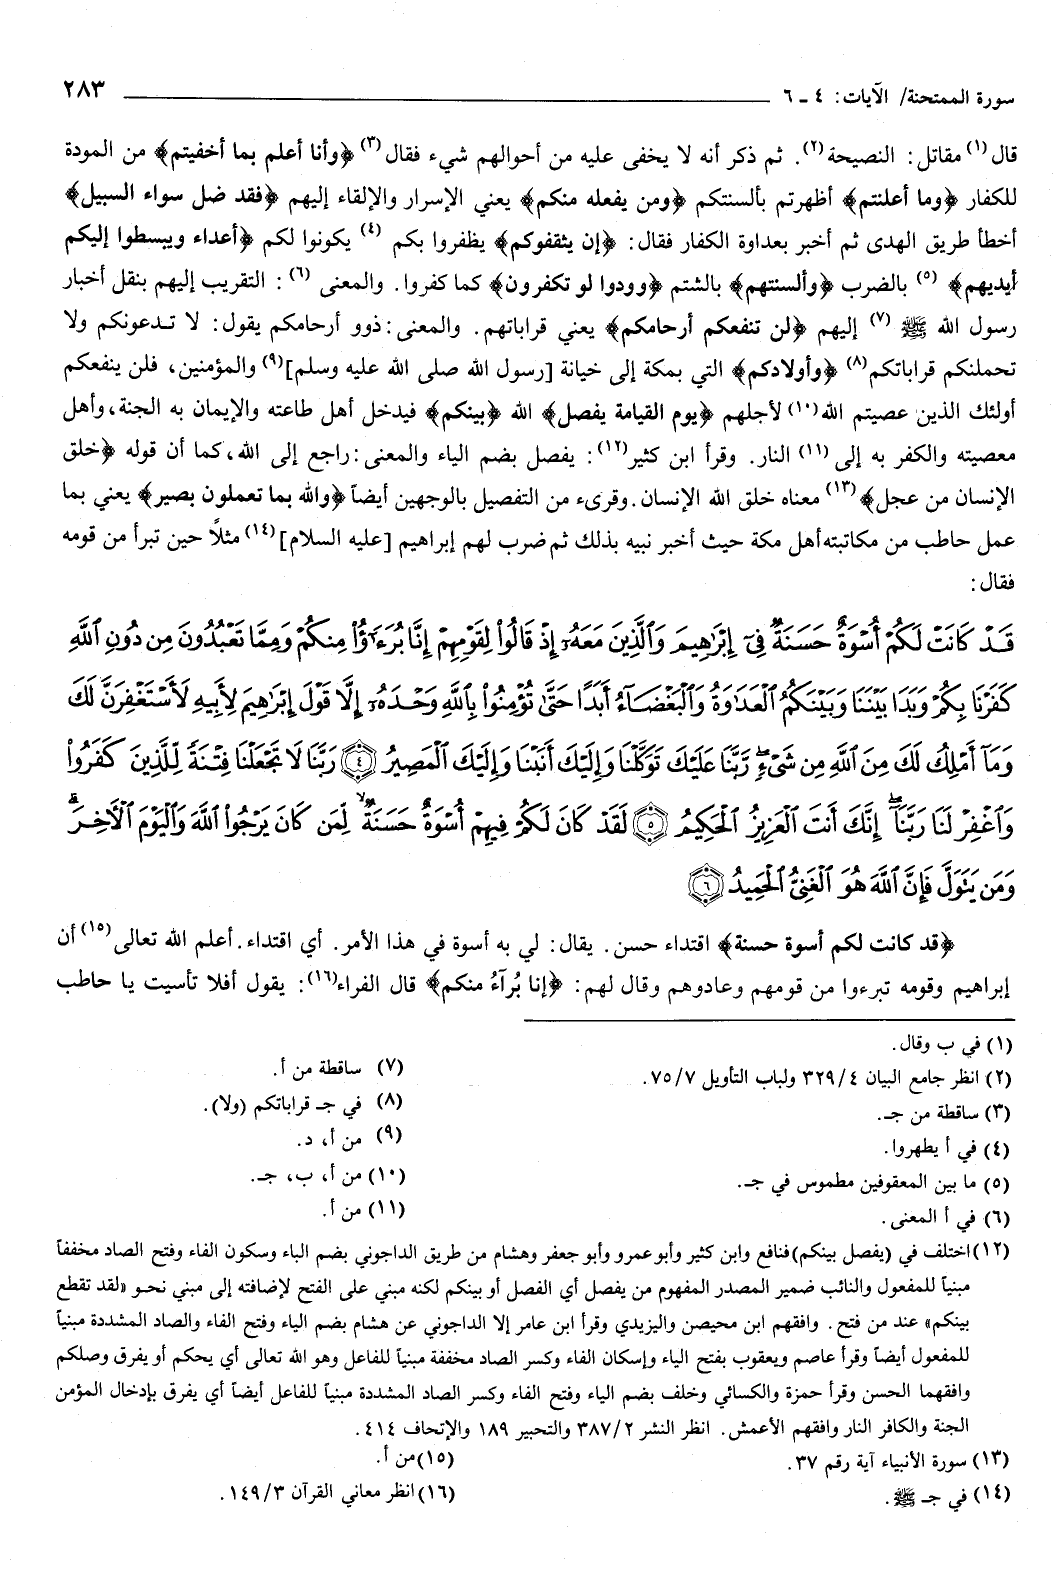 سورة الممتحنة/ الآيات: ٤ ـ ٦ ٢٨٣
قال(١) مقاتل: النصيحة(٢). ثم ذكر أنه لا يخفى عليه من أحوالهم شيء فقال(٣) ﴿وأنا أعلم بما أخفيتم﴾ من المودة
للكفار ﴿وما أعلنتم﴾ أظهرتم بألسنتكم ﴿ومن يفعله منكم﴾ يعني الإسرار والإلقاء إليهم ﴿فقد ضل سواء السبيل﴾
أخطأ طريق الهدى ثم أخبر بعداوة الكفار فقال: ﴿إن يثقفوكم﴾ يظفروا بكم (٤) يكونوا لكم ﴿أعداء ويبسطوا إليكم
أيديهم﴾ (٥) بالضرب ﴿وألسنتهم﴾ بالشتم ﴿وودوا لو تكفرون﴾ كما كفروا. والمعنى (٦): التقريب إليهم بنقل أخبار
رسول الله ﷺ (٧) إليهم ﴿لن تنفعكم أرحامكم﴾ يعني قراباتهم. والمعنى: ذوو أرحامكم يقول: لا تدعونكم ولا
تحملنكم قراباتكم(٨) ﴿وأولادكم﴾ التي بمكة إلى خيانة [رسول الله صلى الله عليه وسلم](٩) والمؤمنين، فلن ينفعكم
أولئك الذين عصيتم الله(١٠) لأجلهم ﴿يوم القيامة يفصل﴾ الله ﴿بينكم﴾ فيدخل أهل طاعته والإيمان به الجنة، وأهل
معصيته والكفر به إلى(١١) النار. وقرأ ابن كثير(١٢): يفصل بضم الياء والمعنى: راجع إلى الله، كما أن قوله ﴿خلق
الإنسان من عجل﴾(١٣) معناه خلق الله الإنسان. وقرىء من التفصيل بالوجهين أيضاً ﴿والله بما تعملون بصير﴾ يعني بما
عمل حاطب من مكاتبته أهل مكة حيث أخبر نبيه بذلك ثم ضرب لهم إبراهيم [عليه السلام](١٤) مثلاً حين تبرأ من قومه
فقال:
قَدْ كَانَتْ لَكُمْ أُسْوَةٌ حَسَنَةٌ فِيٓ إِبْرَٰهِيمَ وَٱلَّذِينَ مَعَهُۥٓ إِذْ قَالُوا۟ لِقَوْمِهِمْ إِنَّا بُرَءَٰٓؤُا۟ مِنكُمْ وَمِمَّا تَعْبُدُونَ مِن دُونِ ٱللَّهِ
كَفَرْنَا بِكُمْ وَبَدَا بَيْنَنَا وَبَيْنَكُمُ ٱلْعَدَٰوَةُ وَٱلْبَغْضَآءُ أَبَدًا حَتَّىٰ تُؤْمِنُوا۟ بِٱللَّهِ وَحْدَهُۥٓ إِلَّا قَوْلَ إِبْرَٰهِيمَ لِأَبِيهِ لَأَسْتَغْفِرَنَّ لَكَ
وَمَآ أَمْلِكُ لَكَ مِنَ ٱللَّهِ مِن شَىْءٍ ۖ رَّبَّنَا عَلَيْكَ تَوَكَّلْنَا وَإِلَيْكَ أَنَبْنَا وَإِلَيْكَ ٱلْمَصِيرُ ﴿٤﴾ رَبَّنَا لَا تَجْعَلْنَا فِتْنَةً لِّلَّذِينَ كَفَرُوا۟
وَٱغْفِرْ لَنَا رَبَّنَآ ۖ إِنَّكَ أَنتَ ٱلْعَزِيزُ ٱلْحَكِيمُ ﴿٥﴾ لَقَدْ كَانَ لَكُمْ فِيهِمْ أُسْوَةٌ حَسَنَةٌ لِّمَن كَانَ يَرْجُوا۟ ٱللَّهَ وَٱلْيَوْمَ ٱلْءَاخِرَ ۚ
وَمَن يَتَوَلَّ فَإِنَّ ٱللَّهَ هُوَ ٱلْغَنِىُّ ٱلْحَمِيدُ ﴿٦﴾
﴿قد كانت لكم أسوة حسنة﴾ اقتداء حسن. يقال: لي به أسوة في هذا الأمر. أي اقتداء. أعلم الله تعالى(١٥) أن
إبراهيم وقومه تبرءوا من قومهم وعادوهم وقال لهم: ﴿إنا بُرآءُ منكم﴾ قال الفراء(١٦): يقول أفلا تأسيت يا حاطب
(١) في ب وقال.
(٢) انظر جامع البيان ٣٢٩/٤ ولباب التأويل ٧٥/٧.
(٣) ساقطة من جـ.
(٤) في أ يطهروا.
(٥) ما بين المعقوفين مطموس في جـ.
(٦) في أ المعنى.
(٧) ساقطة من أ.
(٨) في جـ قراباتكم (ولا).
(٩) من أ، د.
(١٠) من أ، ب، جـ.
(١١) من أ.
(١٢) اختلف في (يفصل بينكم) فنافع وابن كثير وأبو عمرو وأبو جعفر وهشام من طريق الداجوني بضم الياء وسكون الفاء وفتح الصاد مخففاً
مبنياً للمفعول والنائب ضمير المصدر المفهوم من يفصل أي الفصل أو بينكم لكنه مبني على الفتح لإضافته إلى مبني نحو «لقد تقطع
بينكم» عند من فتح. وافقهم ابن محيصن واليزيدي وقرأ ابن عامر إلا الداجوني عن هشام بضم الياء وفتح الفاء والصاد المشددة مبنياً
للمفعول أيضاً وقرأ عاصم ويعقوب بفتح الياء وإسكان الفاء وكسر الصاد مخففة مبنياً للفاعل وهو الله تعالى أي يحكم أو يفرق وصلكم
وافقهما الحسن وقرأ حمزة والكسائي وخلف بضم الياء وفتح الفاء وكسر الصاد المشددة مبنياً للفاعل أيضاً أي يفرق بإدخال المؤمن
الجنة والكافر النار وافقهم الأعمش. انظر النشر ٣٨٧/٢ والتحبير ١٨٩ والإتحاف ٤١٤.
(١٣) سورة الأنبياء آية رقم ٣٧.
(١٤) في جـ ﷺ.
(١٥) من أ.
(١٦) انظر معاني القرآن ١٤٩/٣.